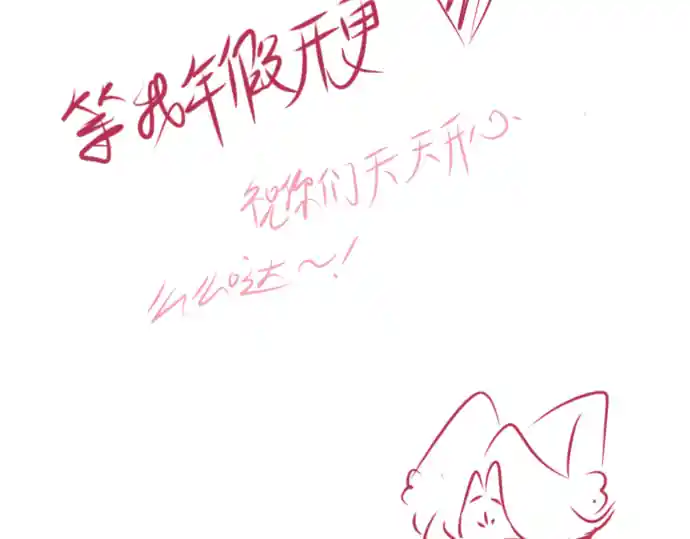 等我年假开更
祝你们天天开心
么么哒~!